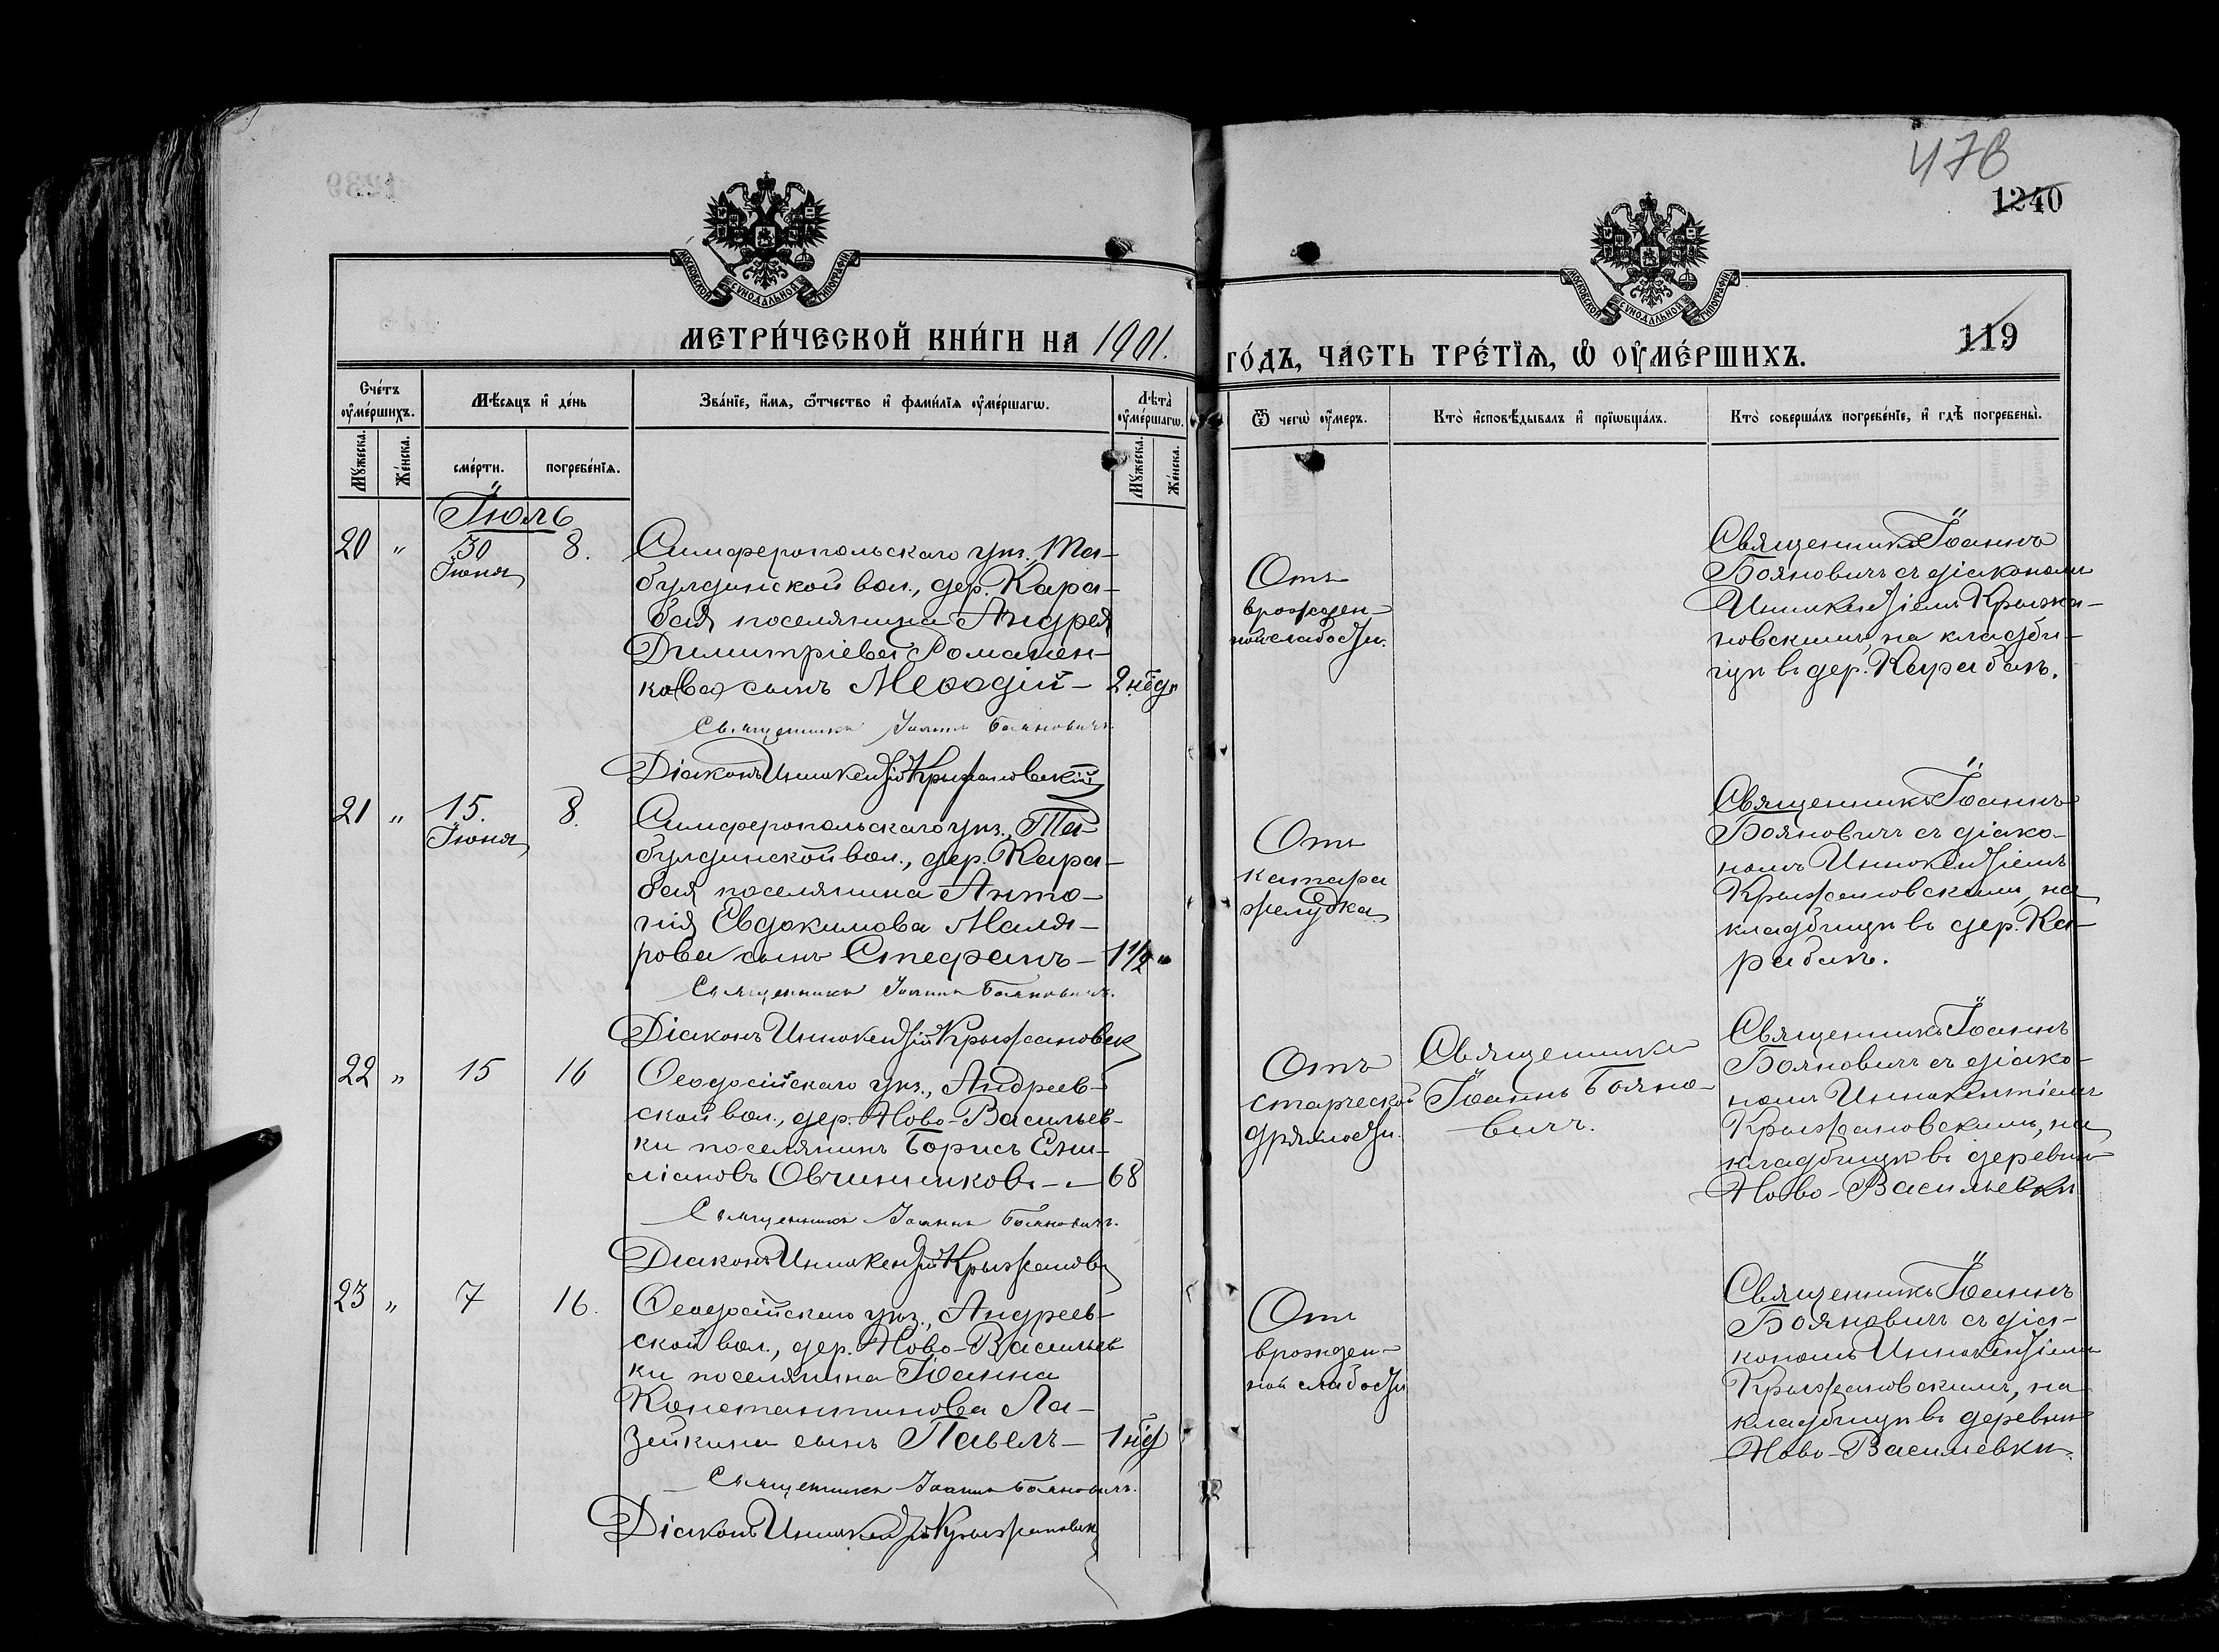 478
1240
119
МОСКОВСКОЙ СѴНОДАЛЬНОЙ ТИПОГРАФІИ
МОСКОВСКОЙ СѴНОДАЛЬНОЙ ТИПОГРАФІИ
МЕТРИ́ЧЕСКОЙ КНИ́ГИ НА 1901. ГО́ДЪ, ЧАСТЬ ТРЕ́ТЇѦ, Ѡ҆ ОУ҆МЕ́РШИХЪ.
Сче́тъ оу҆ме́ршихъ.
Мꙋ́жеска.
Же́нска.
Мѣ́сѧцъ и҆ де́нь
сме́рти.
погребе́нїѧ.
Зва́нїе, и҆́мѧ, ѻ҆́тчество и҆ фами́лїѧ оу҆ме́ршагѡ.
Лѣ̀та оу҆ме́ршагѡ.
Мꙋ́жеска.
Же́нска.
Ѿ чегѡ̀ оу҆́меръ.
Кто̀ и҆сповѣ́дывалъ и҆ прїѡбща́лъ.
Кто̀ соверша́лъ погребе́нїе, и҆ гдѣ̀ погребены̀.
Іюль
20 " 30 Іюня 8.
Симферопольскаго уѣз., Та-
булдинской вол., дер. Кара-
бая поселянина Андрея
Димитріева Романен-
ко(ва) сынъ Меѳодій – 2 нѣд.
Священникъ Іоаннъ Бояновичъ.
Діаконъ Иннокентій Крыжановскій
Отъ
врожден-
ной слабости.
Священникъ Іоаннъ
Бояновичъ съ діакономъ
Иннокентіемъ Крыжа-
новскимъ, на кладби-
щѣ въ дер. Карабаѣ.
21 " 15. Іюня 8.
Симферопольскаго уѣз., Та-
булдинской вол., дер. Кара-
бая поселянина Анто-
нія Евдокимова Маля-
рова сынъ Стефанъ – 1 1/2 "
Священникъ Іоаннъ Бояновичъ.
Діаконъ Иннокентій Крыжановск
Отъ
катара
желудка
Священникъ Іоаннъ
Бояновичъ съ діако-
номъ Иннокентіемъ
Крыжановскимъ, на
кладбищѣ въ дер. Ка-
рабаѣ.
22 " 15 16
Ѳеодосійскаго уѣз., Андреев-
ской вол., дер. Ново-Васильев-
ки поселянинъ Борисъ Еми-
ліановъ Овчинниковъ – 68
Священникъ Іоаннъ Бояновичъ.
Діаконъ Иннокентій Крыжановс
Отъ
старческой
дряхлости.
Священникъ
Іоаннъ Бояно-
вичъ.
Священникъ Іоаннъ
Бояновичъ съ діако-
номъ Иннокентіемъ
Крыжановскимъ, на
кладбищѣ въ деревни
Ново-Васильевки
23 " 7 16.
Ѳеодосійскаго уѣз., Андреев-
ской вол., дер. Ново-Васильев
ки поселянина Іоанна
Константинова Ла-
зейкина сынъ Павелъ – 1 нѣд
Священникъ Іоаннъ Бояновичъ.
Діаконъ Иннокентій Крыжановск
Отъ
врожден-
ной слабости
Священникъ Іоаннъ
Бояновичъ съ діа-
кономъ Иннокентіемъ
Крыжановскимъ, на
кладбищѣ въ деревни
Ново-Василевки.